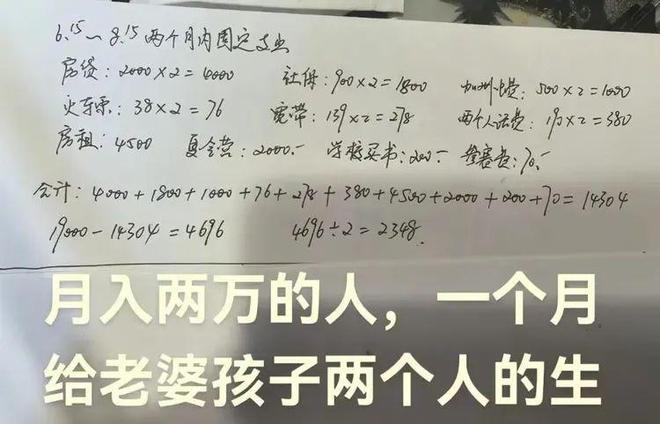 6.15~8.15两个月内固定支出
房贷: 2000×2=4000 社保: 900×2=1800 加油费: 500×2=1000
火车票: 38×2=76 宽带: 139×2=278 两个人话费: 190×2=380
房租: 4500 夏令营: 2000.- 学校买书: 200.- 参赛费: 70.-
合计: 4000+1800+1000+76+278+380+4500+2000+200+70=14304
19000-14304=4696 4696÷2=2348.
月入两万的人，一个月
给老婆孩子两个人的生